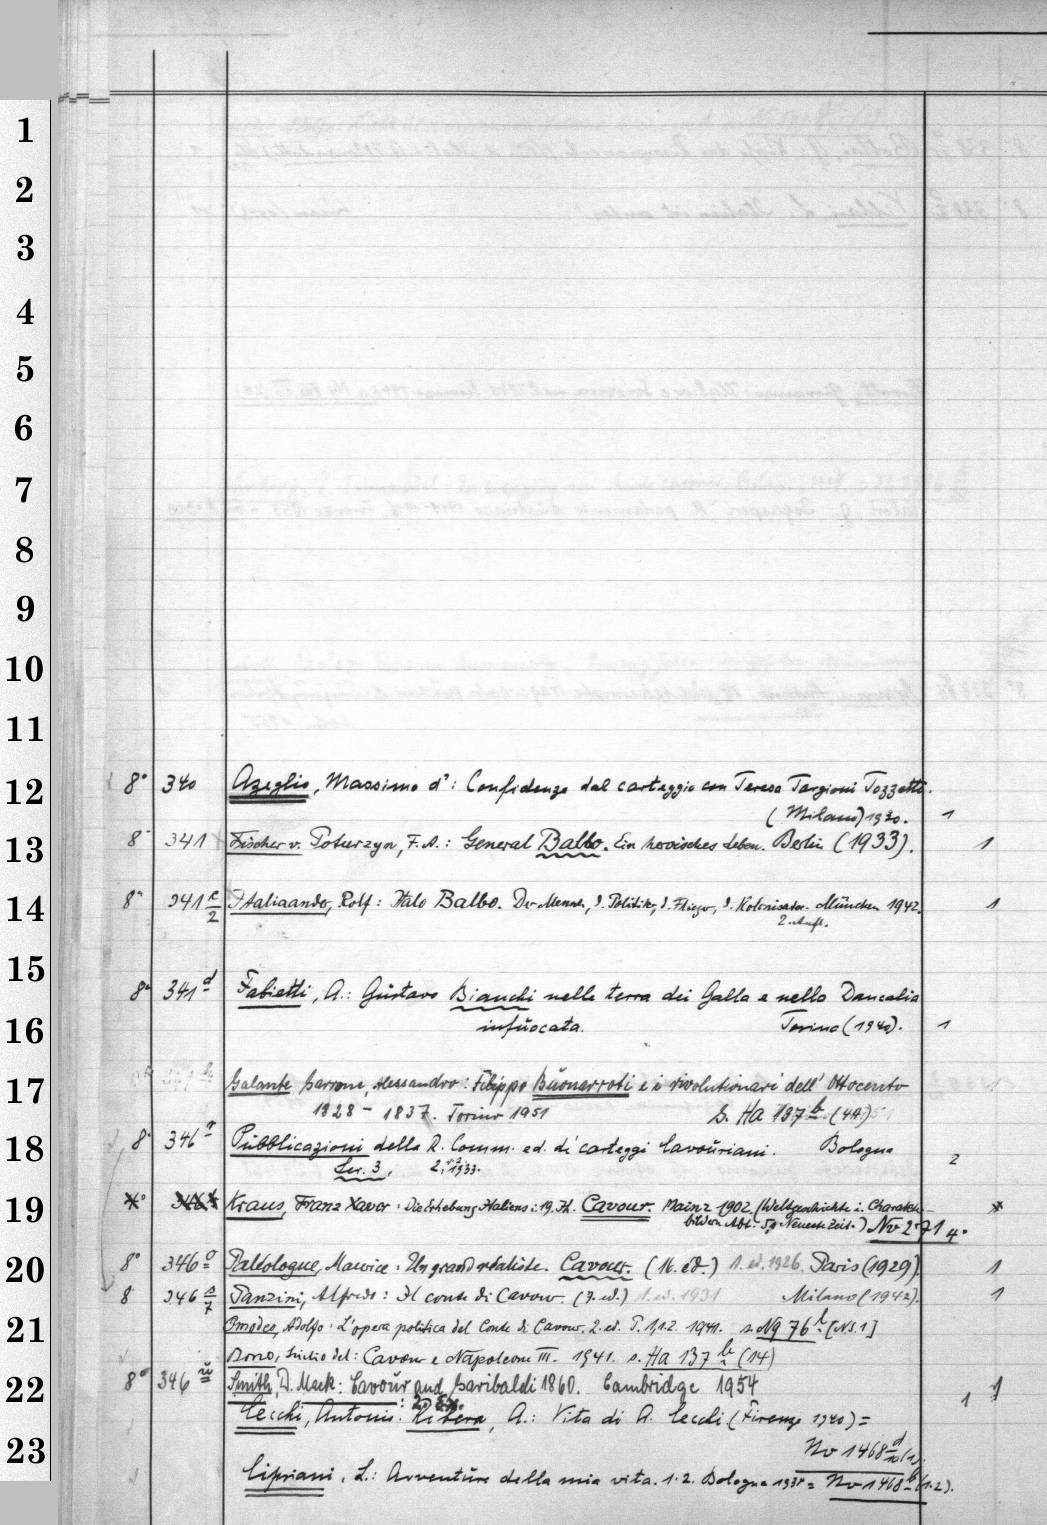 1
2
3
4
5
6
7
8
9
10
11
12
13
14
15
16
17
18
19
20
21
22
23
8° 340 Azeglio, Massimo d': Confidenze dal carteggio con Teresa Targioni Tozzetti.
(Milano) 1930. 1
8° 341 Fischer v. Poturzyn, F. A.: General Balbo. Ein heroisches Leben. Berlin (1933). 1
8° 341 c/2 Italiaander, Rolf: Italo Balbo. Der Mensch, d. Politiker, d. Flieger, d. Kolonisator. München 1942. 1
2. Aufl.
8° 341 d Fabietti, A.: Gustavo Bianchi nelle terra dei Galla e nella Dancalia
infuocata. Torino (1940). 1
Galante Garrone, Alessandro: Filippo Buonarroti e i rivolutionari dell' Ottocento
1828 - 1837. Torino 1951 s. Ha 137 b (44)
8° 346 Pubblicazioni della R. Comm. ed. di carteggi Cavouriani. Bologna
Ser. 3, 2, 1933. 2
Kraus, Franz Xaver: Die Erhebung Italiens i. 19. Jh. Cavour. Mainz 1902. (Weltgeschichte i. Charakter-
bildern Abt. 5, Neueste Zeit.) Nv 271 4°
8° 346 Paléologue, Maurice: Un grand réaliste. Cavour. (16. éd.) 1. ed. 1926. Paris (1929). 1
8° 346 a/7 Panzini, Alfredo: Il conte di Cavour. (7. ed.) 1. ed. 1931 Milano (1942). 1
Omodeo, Adolfo: L'opera politica del Conte di Cavour. 2. ed. P. 1, 1.2. 1941. s. Nq 76 [N.S. 1]
Borno, Giulio del: Cavour e Napoleone III. 1941. s. Ha 137 b (14)
8° 346 Smith, D. Mack: Cavour and Garibaldi 1860. Cambridge 1954 1
: 2. Ex. 1
Cecchi, Antonio: Ribera, A.: Vita di A. Cecchi (Firenze 1940) =
Nv 1468 d
Cipriani, L.: Avventure della mia vita. 1.2. Bologna 1934 = Nv 1468 b (1.2).